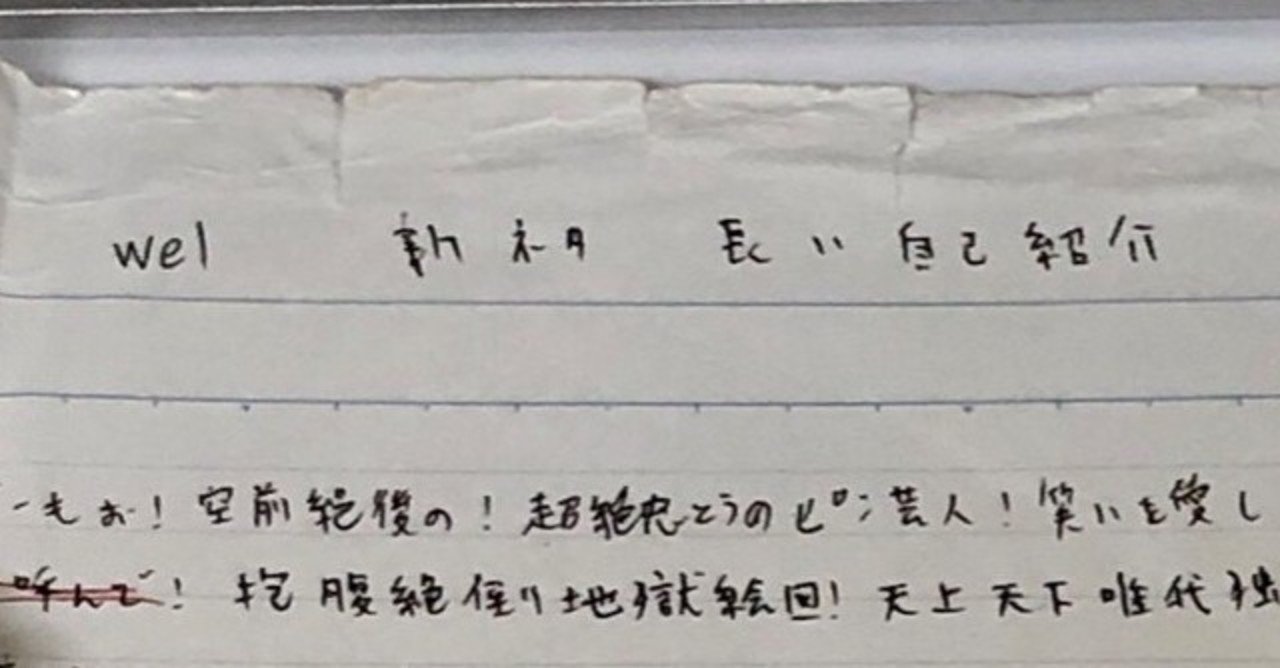 wel 新ネタ 長い自己紹介
もぉ!空前絶後の!超絶怒とうのピン芸人!笑いを愛し
呼んで!抱腹絶倒り地獄絵図!天上天下唯我独